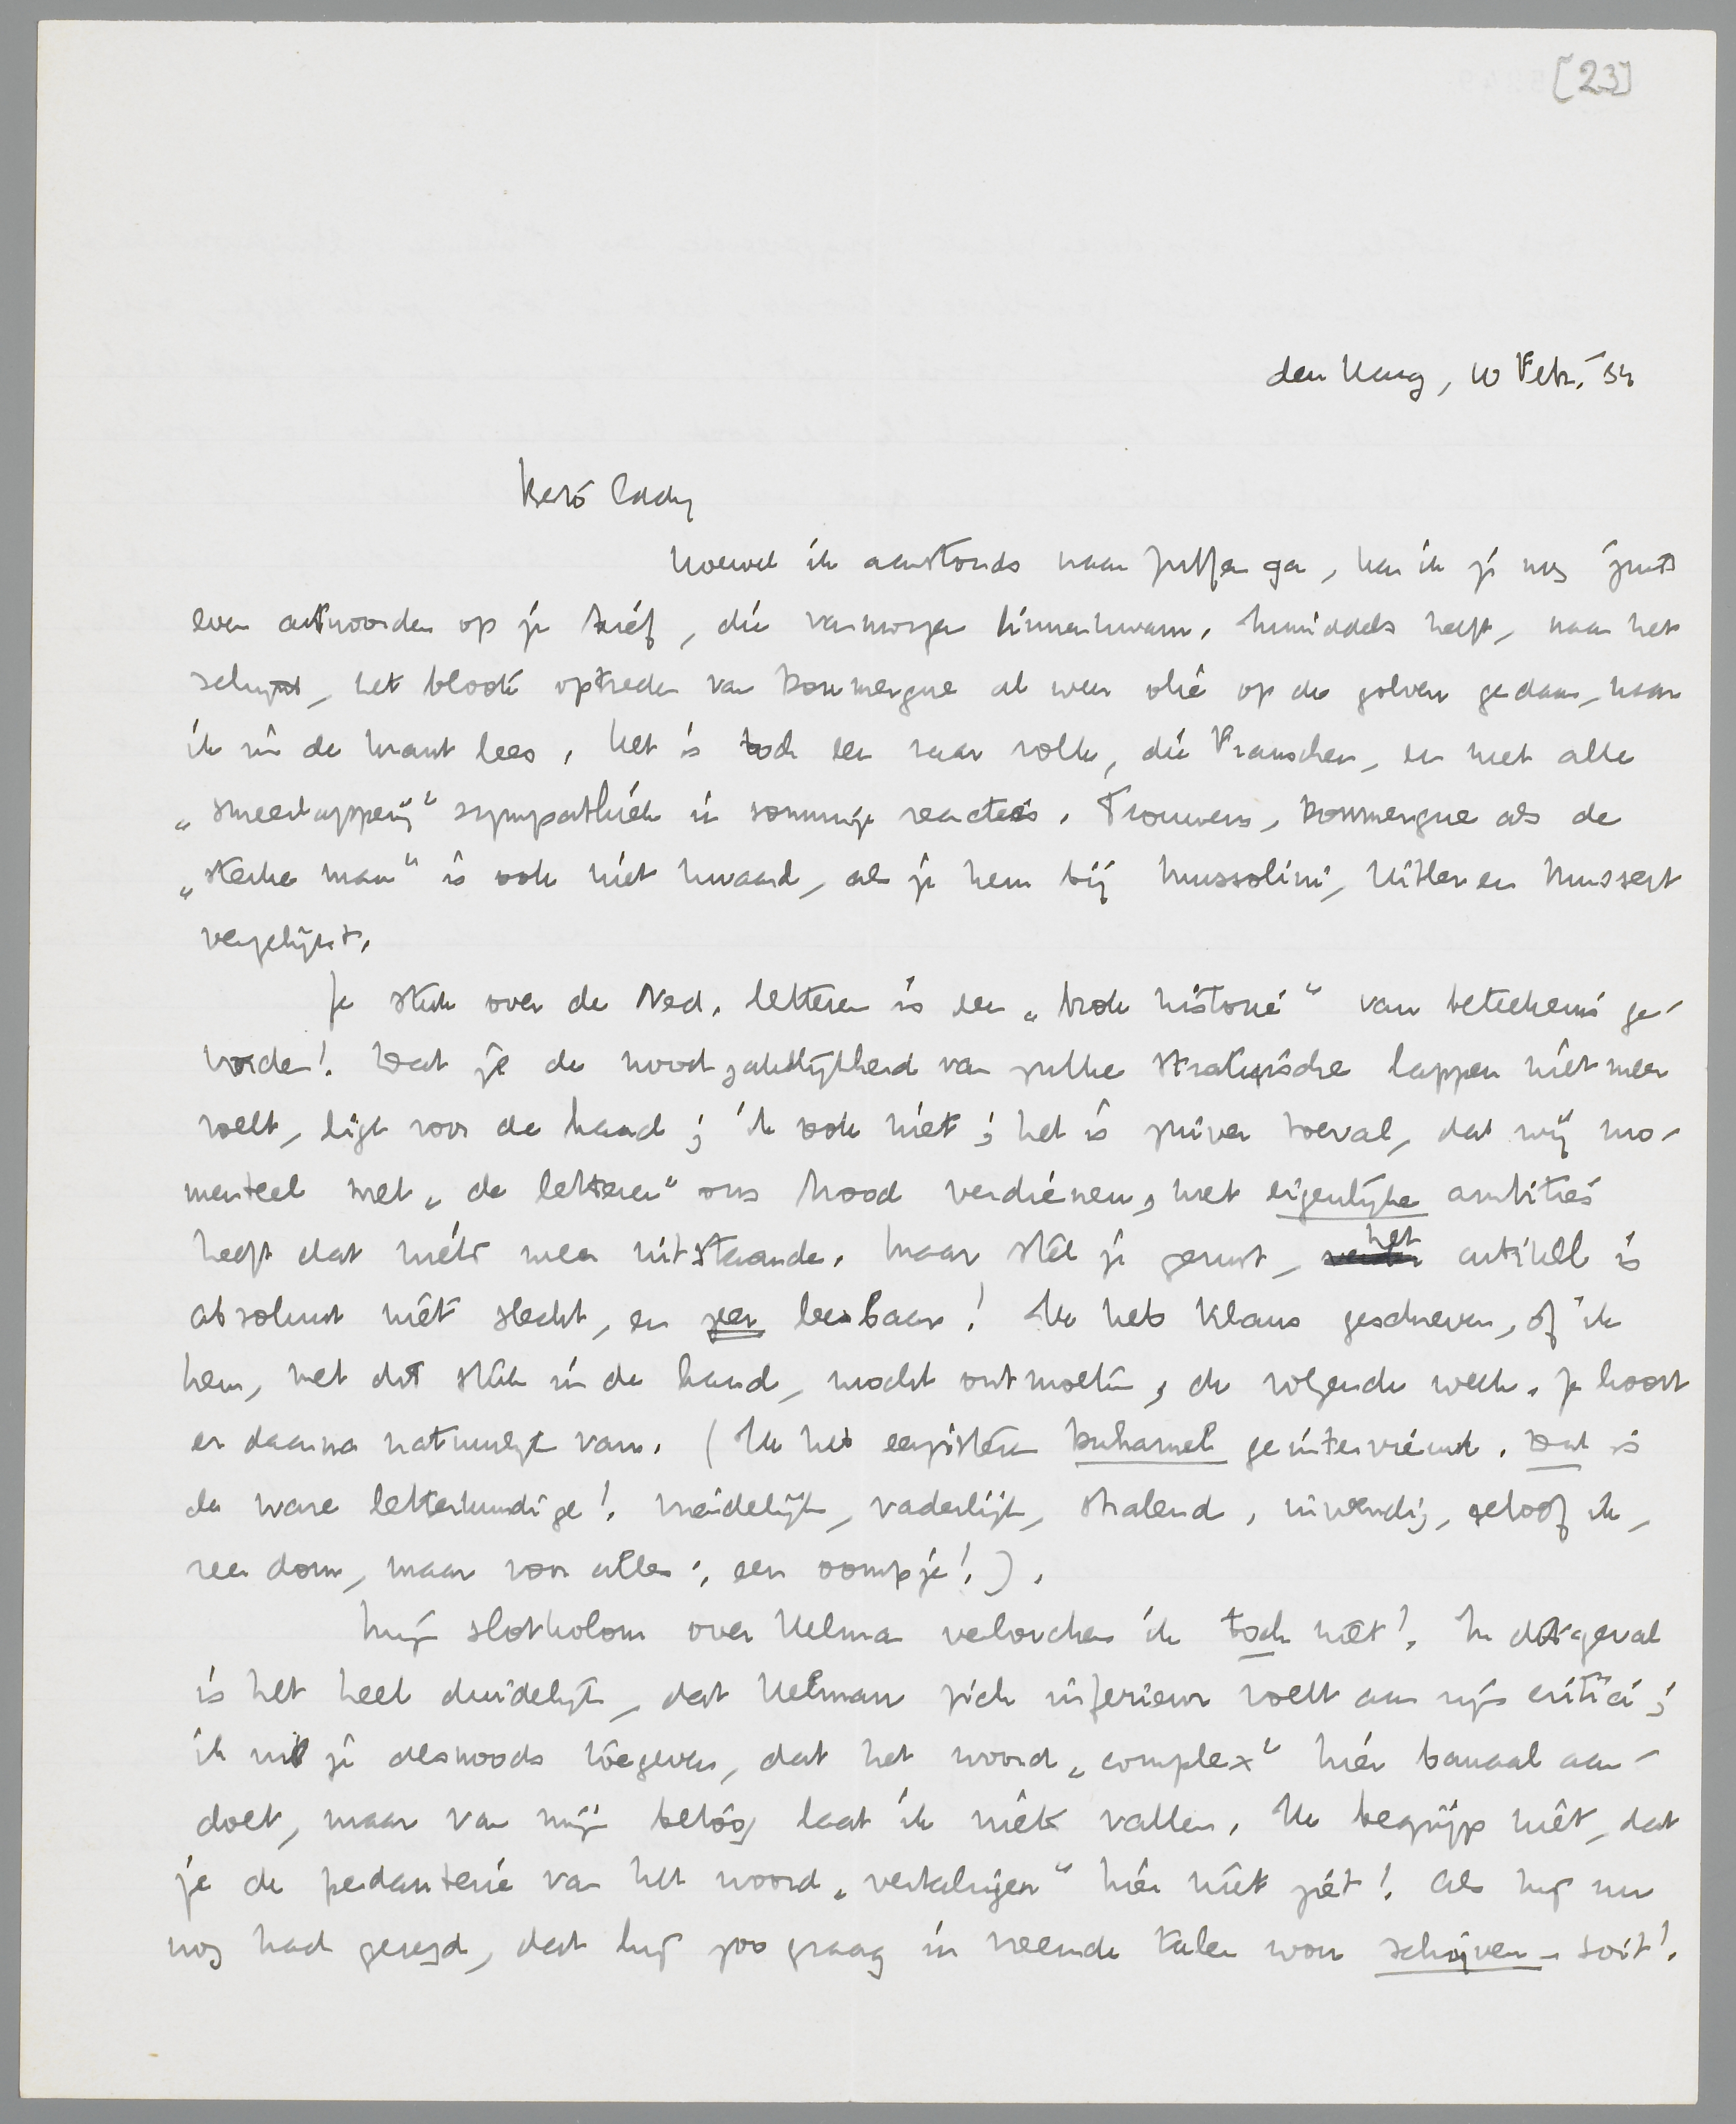 [23]
den Haag, 10 Febr. '34
Beste Eddy
Hoewel ik aanstonds naar Zutfen ga, kan ik je nog juist
even antwoorden op je brief, die vanmorgen binnenkwam. Inmiddels heeft, naar het
schijnt, het bloote optreden van Doumergue al weer olie op de golven gedaan, naar
ik in de krant lees. Het is toch een raar volk, die Franschen, en met alle
„smeerlapperij" sympathiek in sommige reacties. Trouwens, Doumergue als de
„sterke man" is ook niet kwaad, als je hem bij Mussolini, Hitler en Mussert
vergelijkt.
Je stuk over de Ned. letteren is een „brok historie" van beteekenis ge-
worden! Dat je de noodzakelijkheid van zulke strategische lappen niet meer
voelt, ligt voor de hand; ik ook niet; het is zuiver toeval, dat wij mo-
menteel met „de letteren" ons brood verdienen, met eigenlijke ambities
heeft dat niets meer uitstaande. Maar stel je gerust, het artikel is
absoluut niet slecht, en zeer leesbaar! Ik heb Klaus geschreven, of ik
hem, met dit stuk in de hand, mocht ontmoeten, de volgende week. Je hoort
er daarna natuurlijk van. (Ik heb eergisteren Duhamel geïnterviewd. Dat is
de ware letterkundige! Vriendelijk, vaderlijk, stralend, inwendig, geloof ik,
zeer dom, maar voor alles: een oompje!).
Mijn slotkolom over Helman verloochen ik toch niet! In dit geval
is het heel duidelijk, dat Helman zich inferieur voelt aan zijn critici;
ik wil je desnoods toegeven, dat het woord „complex" hier banaal aan-
doet, maar van mijn betoog laat ik niets vallen. Ik begrijp niet, dat
je de pedanterie van het woord „vertalingen" hier niet ziet! Als hij nu
nog had gezegd, dat hij zoo graag in vreemde talen wou schrijven - soit!